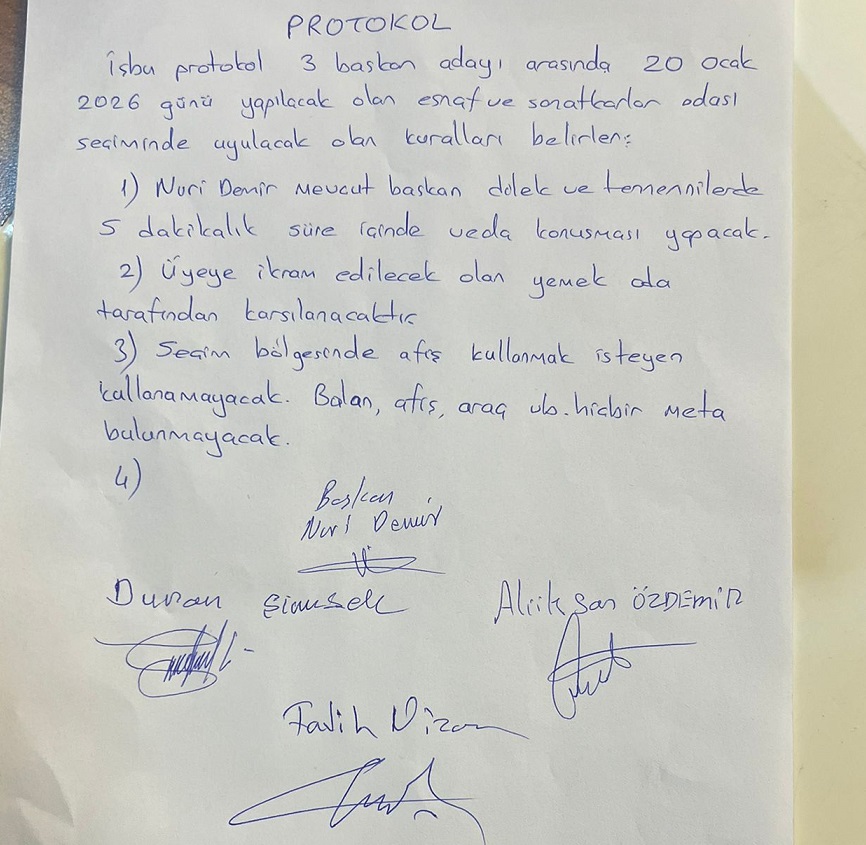 PROTOKOL
İşbu protokol 3 başkan adayı arasında 20 Ocak
2026 günü yapılacak olan esnaf ve sanatkarlar odası
seçiminde uyulacak olan kuralları belirler:
1) Nuri Demir Mevcut başkan dilek ve temennilerde
5 dakikalık süre içinde veda konusması yapacak.
2) Üyeye ikram edilecek olan yemek oda
tarafından karsılanacaktır
3) Seçim bölgesinde afiş kullanmak isteyen
kullanamayacak. Balan, afiş, araç vb. hiçbir meta
bulunmayacak.
4)
Başkan
Nuri Demir
Duran Şimşek
Alişkan ÖZDEMİR
Fatih Nizam